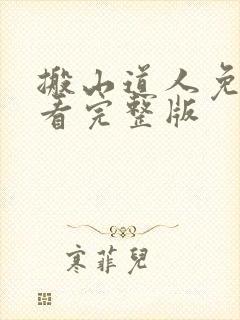 搬山道人免
看完整版
寒菲兒